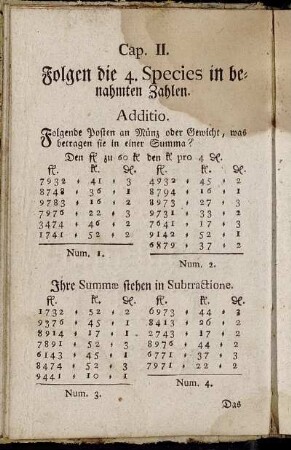 Cap. II.
Folgen die 4. Species in be-
nahmten Zahlen.
Additio.
Folgende Posten an Münz oder Gewicht, was
betragen sie in einer Summa?
Den fl. zu 60 kr. den kr. pro 4 d.
fl. kr. d. fl. kr. d.
7932 . 41 . 3 4932 . 45 . 2
8748 . 36 . 1 8794 . 16 . 1
9783 . 16 . 2 8973 . 39 . 3
7976 . 22 . 3 9731 . 33 . 2
3474 . 46 . 2 7641 . 17 . 3
1741 . 52 . 2 9142 . 52 . 1
6879 . 37 . 2
Num. 1. Num. 2.
Ihre Summæ stehen in Subtractione.
fl. kr. d. fl. kr. d.
1732 . 52 . 2 6973 . 44 . 3
9376 . 45 . 1 8413 . 26 . 2
8914 . 17 . 1 2743 . 17 . 2
7891 . 52 . 3 8976 . 44 . 2
6143 . 45 . 1 6771 . 37 . 3
8474 . 52 . 3 7971 . 22 . 2
9441 . 10 . 1
Num. 3. Num. 4.
Das